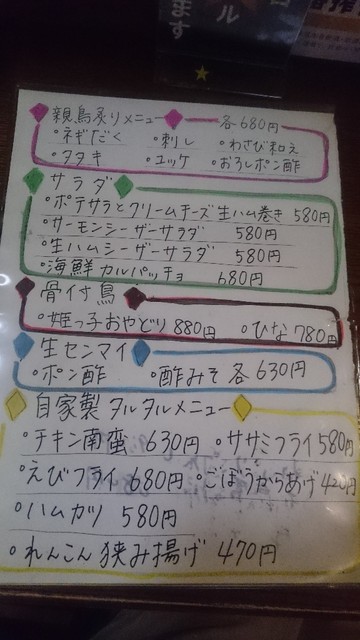 ル
ます
親鳥炙りメニュー 各680円
°ネギだく °刺し °わさび和え
°タタキ °ユッケ °おろしポン酢
サラダ
°ポテサラとクリームチーズ生ハム巻き 580円
°サーモンシーザーサラダ 580円
°生ハムシーザーサラダ 580円
°海鮮カルパッチョ 680円
骨付鳥
°姫っ子おやどり880円 °ひな780円
生センマイ
°ポン酢 °酢みそ 各630円
自家製タルタルメニュー
°チキン南蛮 630円 °ササミフライ580円
°えびフライ 680円 °ごぼうからあげ420円
°ハムカツ 580円
°れんこん挟み揚げ 470円